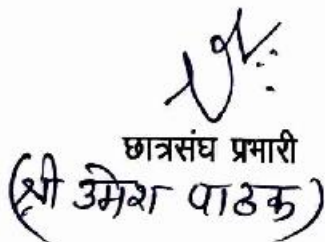 छात्रसंघ प्रभारी
(श्री उमेश पाठक)